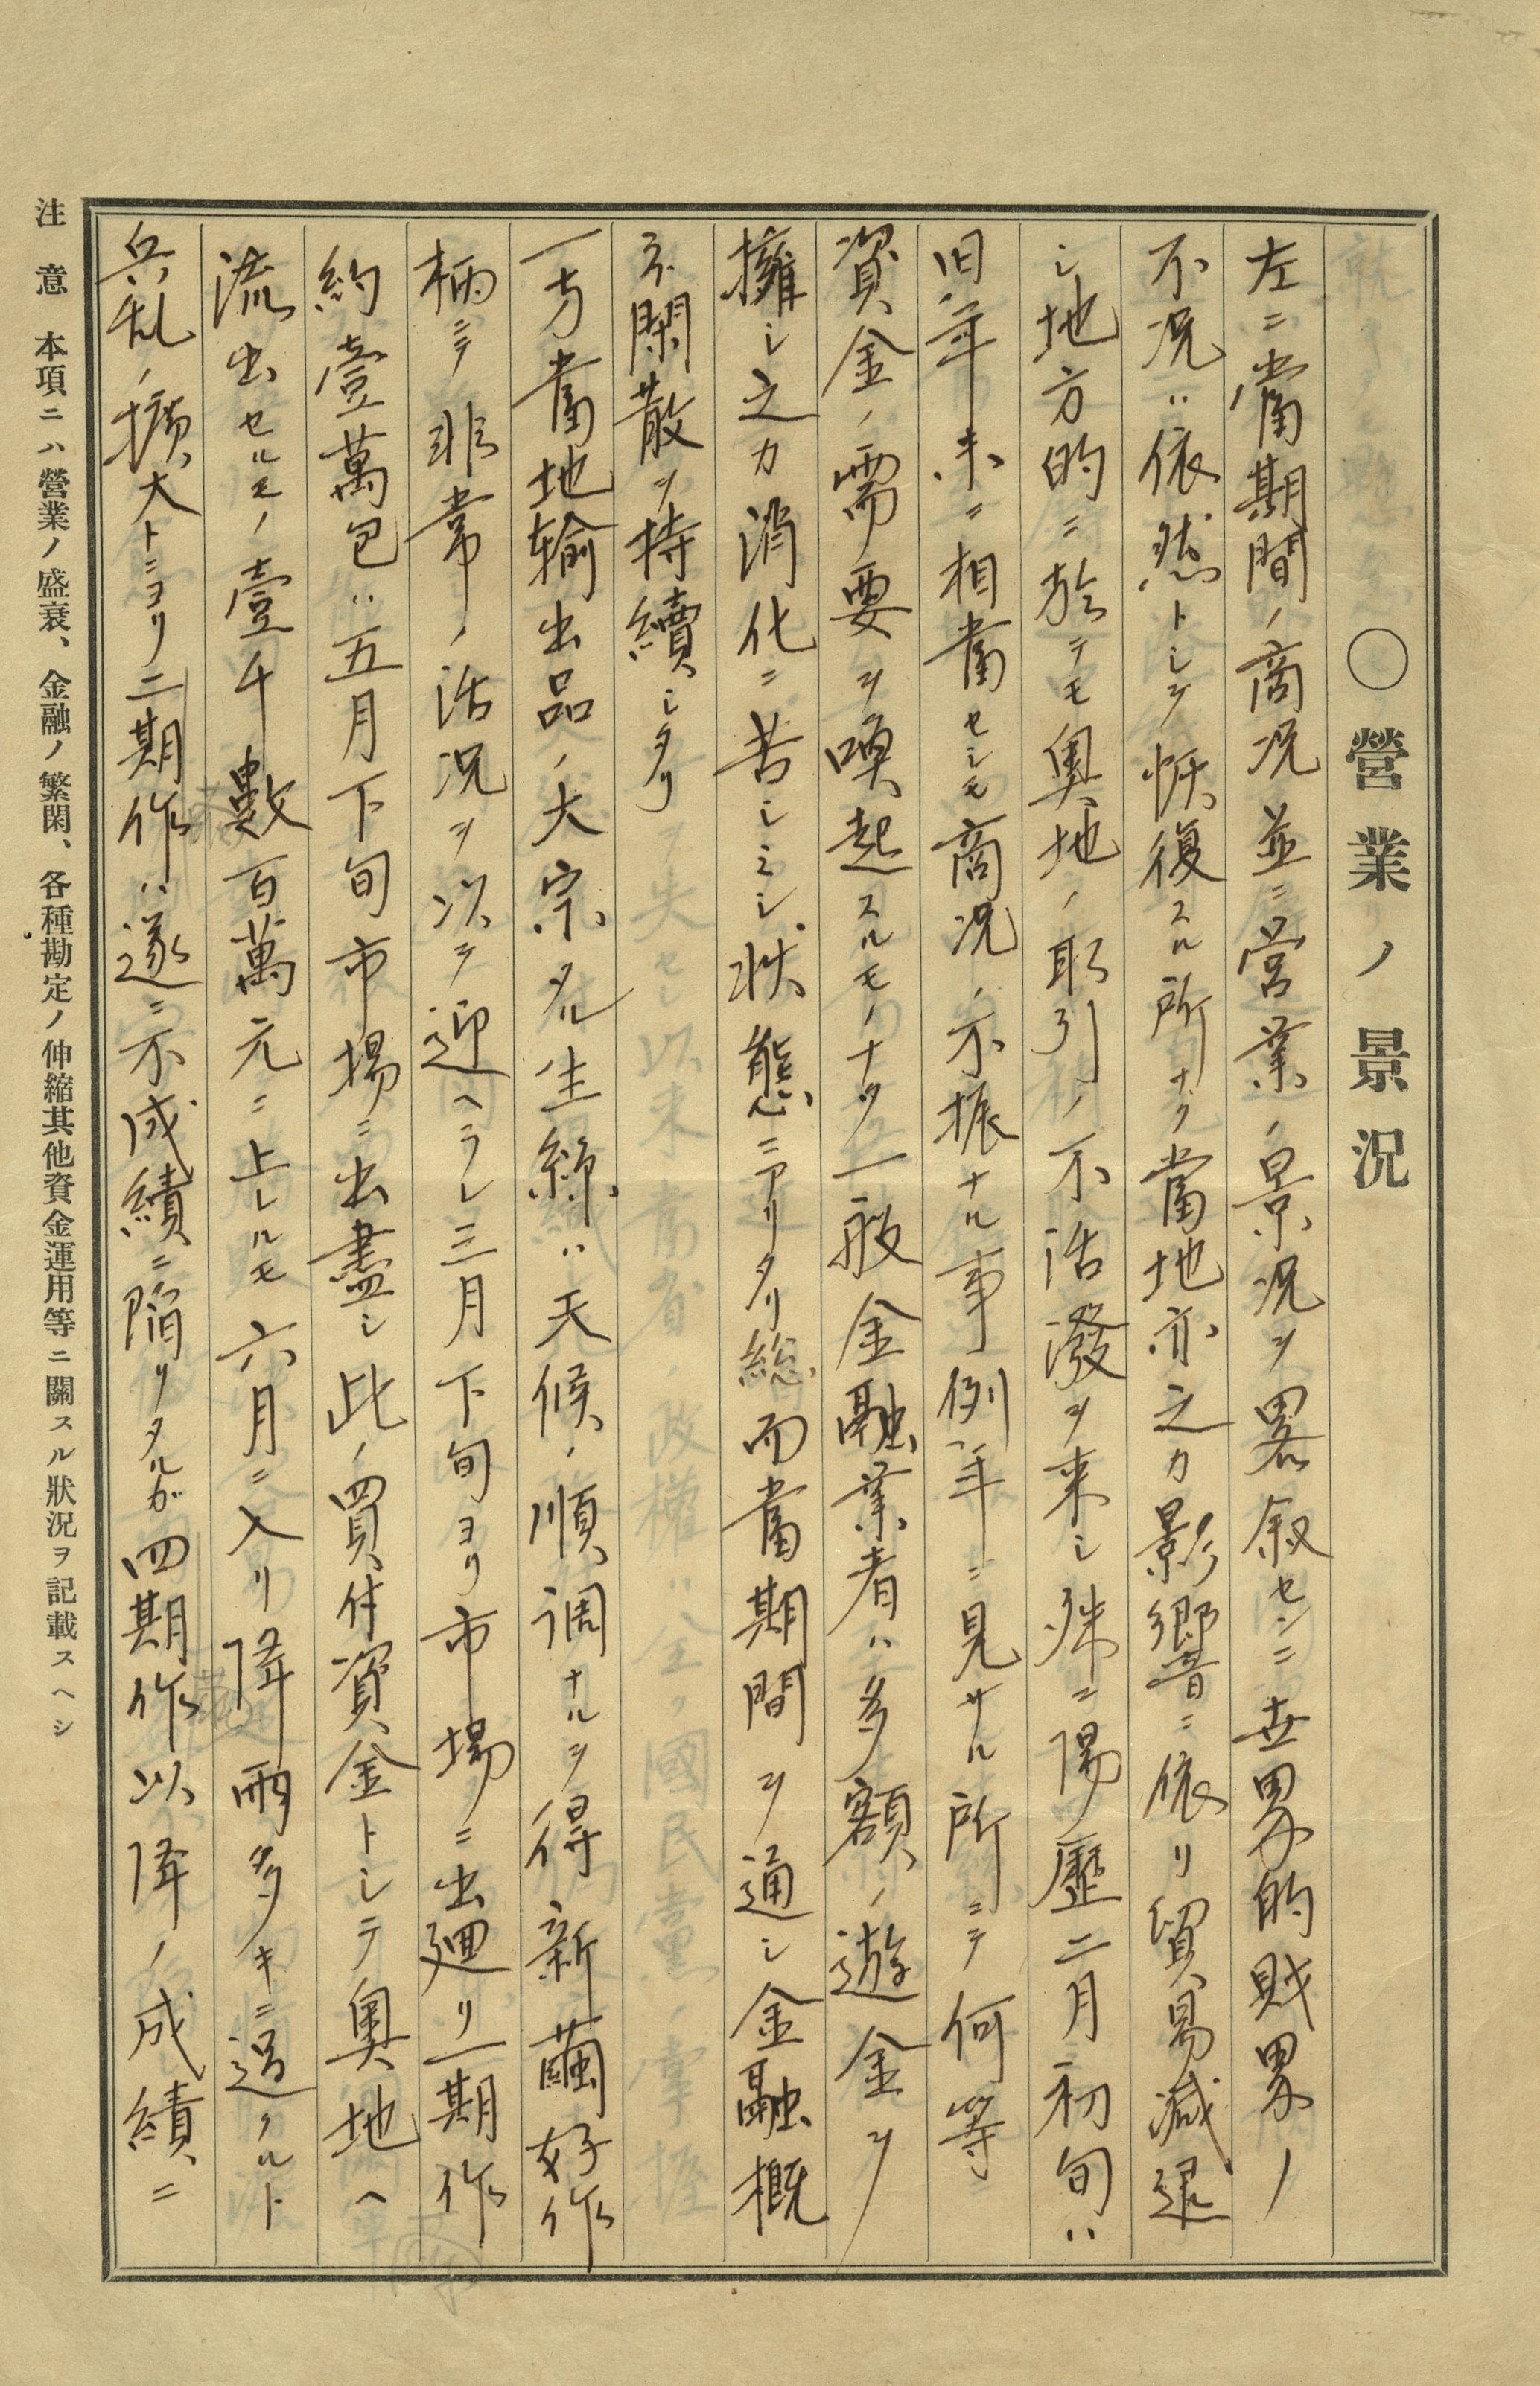 〇營業ノ景況
左ニ當期間ノ商况並ニ営業ノ景況ヲ畧叙センニ世界的財界ノ
不况ハ依然トシテ恢復スル所ナク當地亦之カ影響ニ依リ貿易減退
シ地方的ニ於テモ奥地ノ取引ノ不活潑ヲ来シ殊ニ陽歷二月初旬ハ
旧年末ニ相當セシモ商况ノ不振ナル事例年ニ見サル所ニテ何等
資金ノ需要ヲ喚起スルモノナク一般金融業者ハ多額ノ遊金ヲ
擁シ之カ消化ニ苦シミシ状態ニアリタリ総而當期間ヲ通シ金融概
子閑散ヲ持續シタリ
一方當地輸出品ノ大宗タル生絲ハ天候ノ順調ナルヲ得新繭好作
柄ニテ非常ノ活況ヲ以テ迎ヘラレ三月下旬ヨリ市場ニ出廻リ一期作
約壹萬包ハ五月下旬市場ニ出盡シ此ノ買付資金トシテ奥地ヘ
流出セルモノ壹千數百萬元ニ上レルモ六月ニ入リ降雨多キニ過クルト
兵乱ノ擴大トニヨリ二期作ハ遂ニ不成績ニ陥リタルガ四期作以降ノ成績ニ
注意　本項ニハ營業ノ盛衰、金融ノ繁閑、各種勘定ノ伸縮其他資金運用等ニ關スル狀況ヲ記載スヘシ